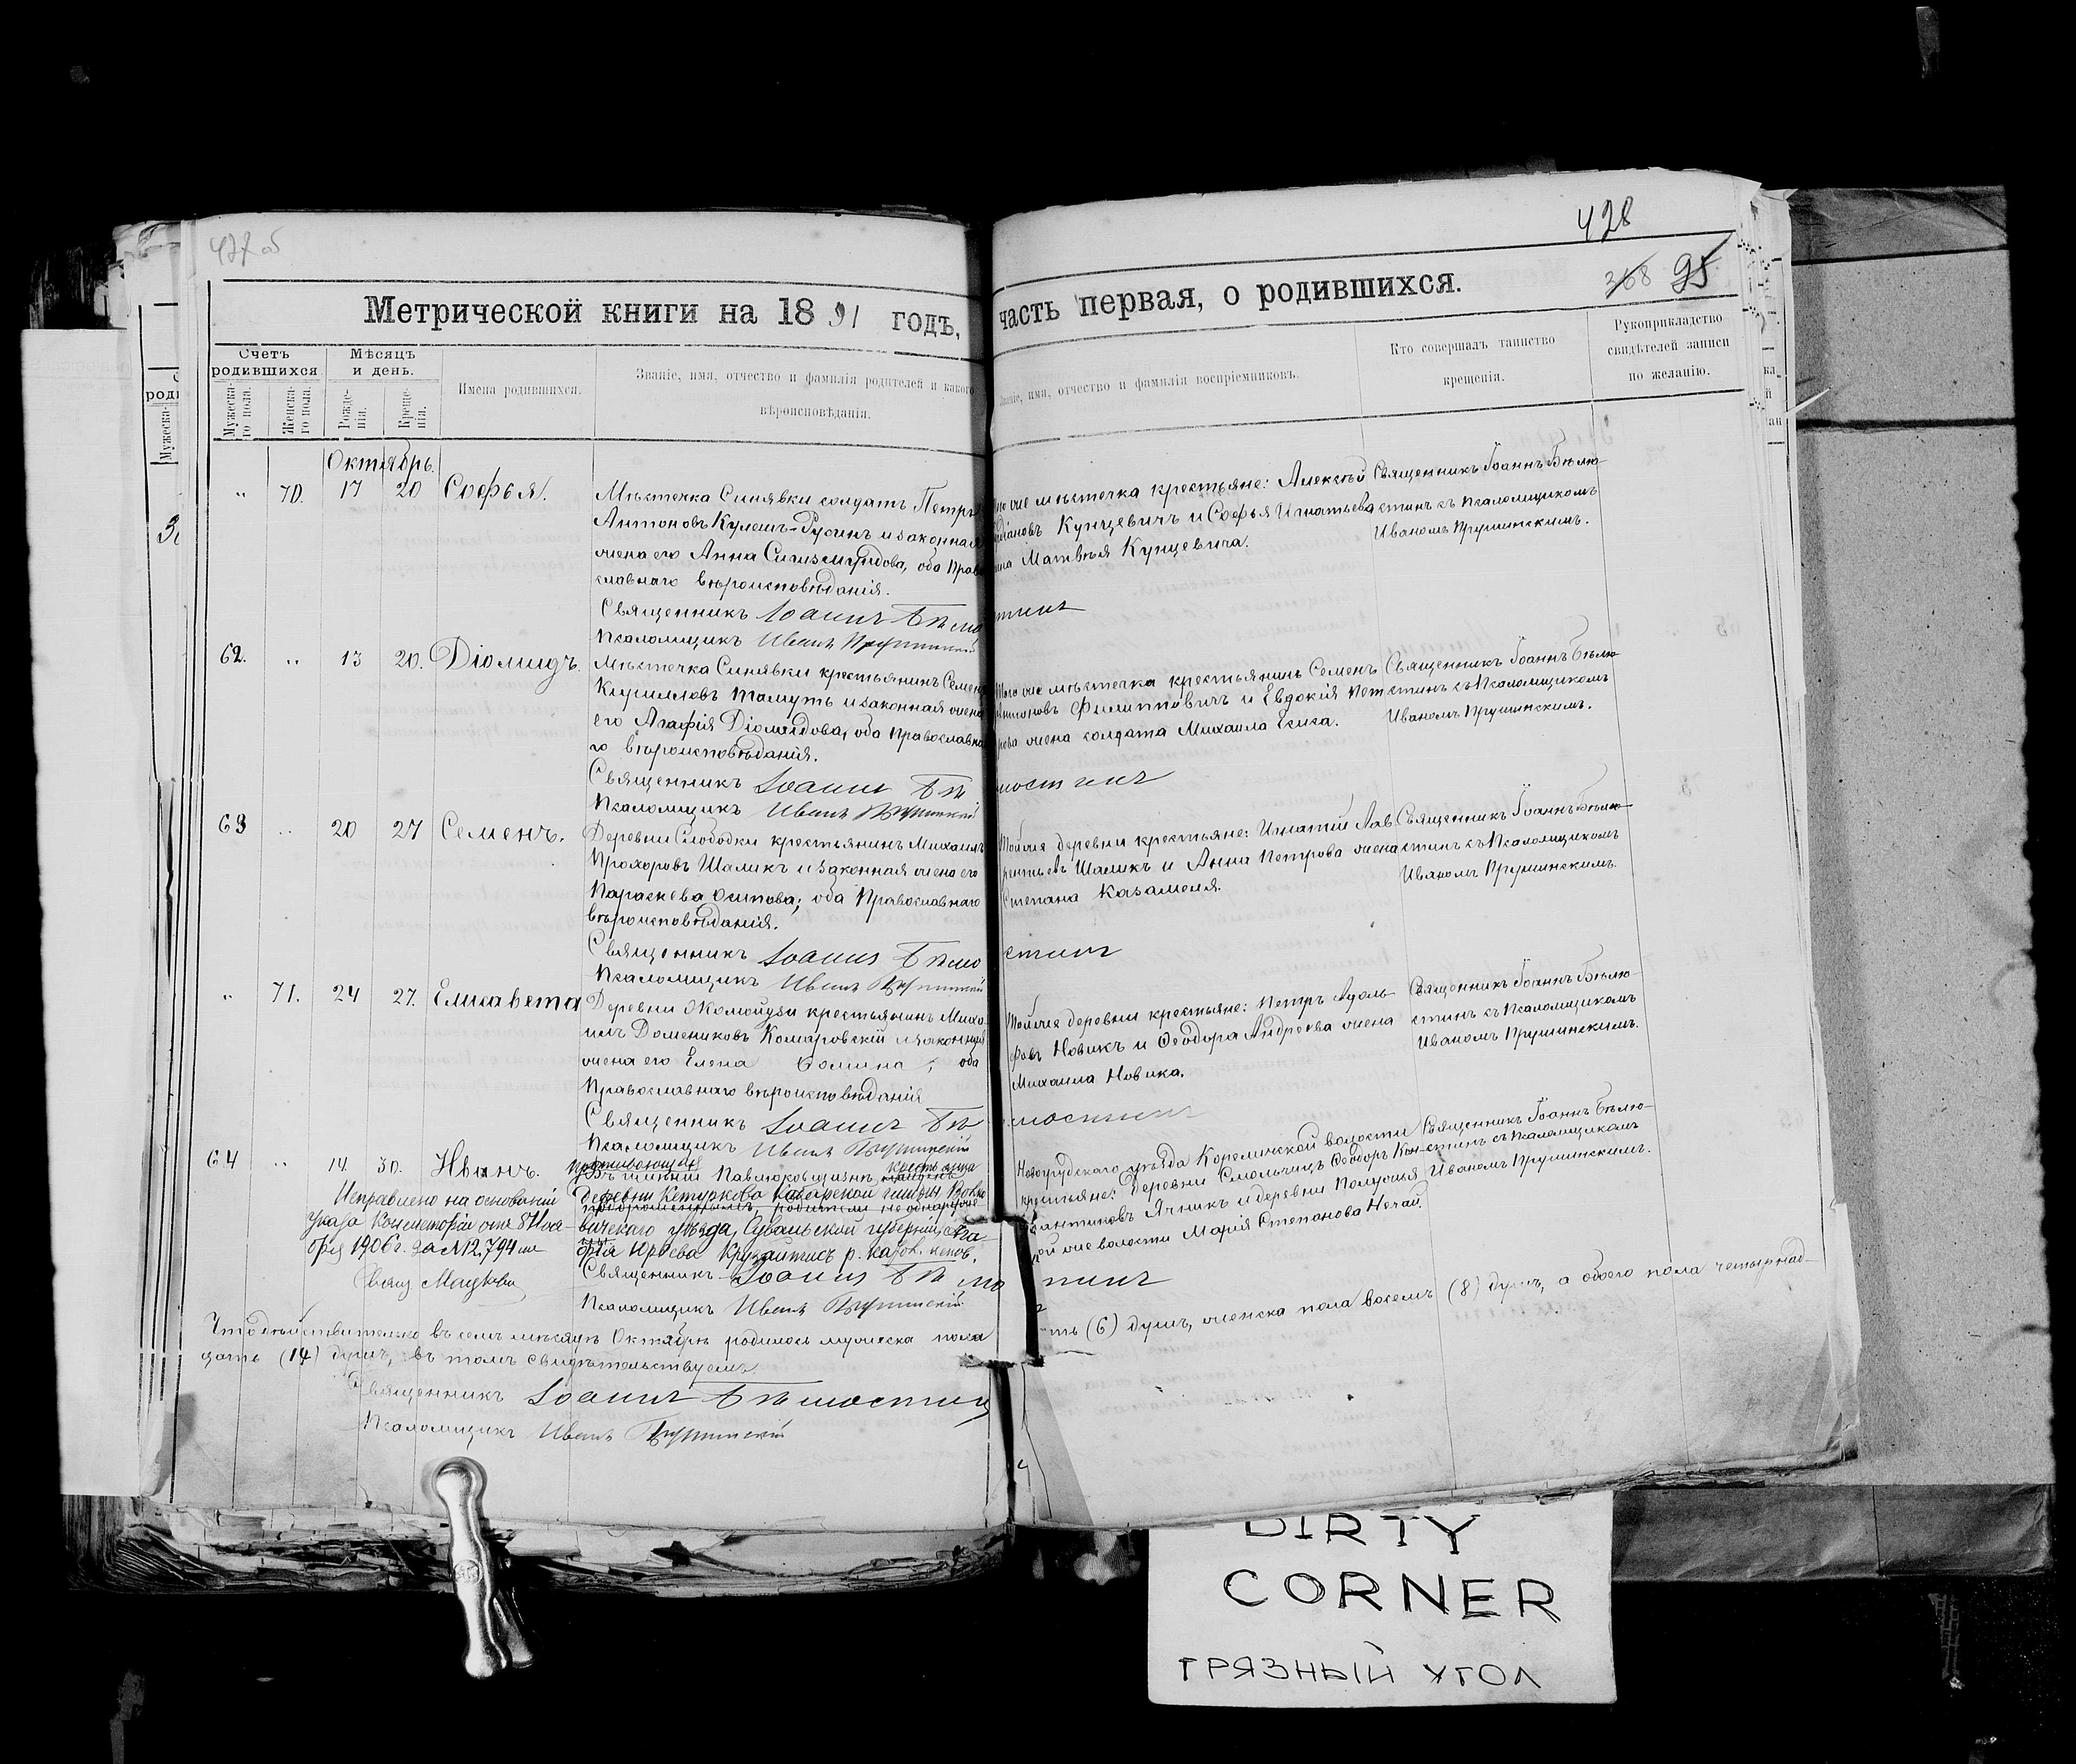 477 об
428
368 95
Метрической книги на 1891 годъ, часть первая, о родившихся.
Счетъ родившихся
Мужеска-го пола.
Женска-го пола.
Мѣсяцъ и день.
Рожде-нія.
Креще-нія.
Имена родившихся.
Званіе, имя, отчество и фамилія родителей и какого
вѣроисповѣданія.
Званіе, имя, отчество и фамилія воспріемниковъ.
Кто совершалъ таинство
крещенія.
Рукоприкладство
свидѣтелей записи
по желанію.
Октябрь.
" 70. 17 20 Софья.
Мѣстечка Синявки солдатъ Петръ
Антоновъ Кулешъ-Русинъ и законная
жена его Анна Сигизмундова, оба Право
славнаго вѣроисповѣданія.
Священникъ Іоаннъ Бѣлю
Псаломщикъ Иванъ Прушинскій
же мѣстечка крестьяне: Алексѣй
Кунцевичъ и Софья Игнатьева
Матвѣя Кунцевича.
стинъ
Священникъ Іоаннъ Бѣлю-
стинъ съ Псаломщикомъ
Иваномъ Прушинскимъ.
62. " 13 20. Діомидъ.
Мѣстечка Синявки крестьянинъ Семенъ
Кирилловъ Мамутъ и законная жена
его Агафія Діомидова, оба Православна
го вѣроисповѣданія.
Священникъ Іоаннъ Бѣ
Псаломщикъ Иванъ Прушинскій
Того же мѣстечка крестьянинъ Семенъ
Антоновъ Филипповичъ и Евдокія Пет
рова жена солдата Михаила Езиса.
люстинъ
Священникъ Іоаннъ Бѣлю-
стинъ съ Псаломщикомъ
Иваномъ Прушинскимъ.
63 " 20 27 Семенъ.
Деревни Слободки крестьянинъ Михаилъ
Прохоровъ Шаликъ и законная жена его
Параскева Осипова; оба Православнаго
вѣроисповѣданія.
Священникъ Іоаннъ Бѣлю
Псаломщикъ Иванъ Прушинскій
Той же деревни крестьяне: Игнатій Лав
рентьевъ Шаликъ и Анна Петрова жена
Степана Казамеля.
стинъ
Священникъ Іоаннъ Бѣлю-
стинъ съ Псаломщикомъ
Иваномъ Прушинскимъ.
" 71. 24 27. Елисавета
Деревни крестьянинъ Миха-
илъ Домениковъ Комаровскій и законная
жена его Елена Фомина; оба
Православнаго вѣроисповѣданія
Священникъ Іоаннъ Бѣ
Псаломщикъ Иванъ Прушинскій
Той же деревни крестьяне: Петръ Адоль
фовъ Новикъ и Ѳеодора Андреева жена
Михаила Новика.
люстинъ
Священникъ Іоаннъ Бѣлю-
стинъ съ Псаломщикомъ
Иваномъ Прушинскимъ.
64 " 14. 30. Иванъ.
Исправлено на основаніи
Указа Консисторіи отъ 8 Ноя-
бря 1906 г. за № 12,794
Свящ
проживающая крестьянка
Въ имѣніи
Деревни
родители не
вичскаго уѣзда, Сувальской губерніи,
Юрьева р. катол. испов.
Священникъ Іоаннъ Бѣлю
Псаломщикъ Иванъ Прушинскій
Новогрудскаго уѣзда Кореличской волости
крестьяне: Деревни Смольчицъ Ѳеодоръ Кон-
стантиновъ Ячникъ и деревни Полужья
той же волости Марія Степанова Нечай.
стинъ
Священникъ Іоаннъ Бѣлю-
стинъ съ Псаломщикомъ
Иваномъ Прушинскимъ.
Что дѣйствительно въ семъ мѣсяцѣ Октябрѣ родилось мужеска пола шесть (6) душъ, женска пола восемь (8) душъ, а обоего пола четырнад-
цать (14) душъ, въ томъ свидѣтельствуемъ
Священникъ Іоаннъ Бѣлюстинъ
Псаломщикъ Иванъ Прушинскій
DIRTY
CORNER
ГРЯЗНЫЙ УГОЛ